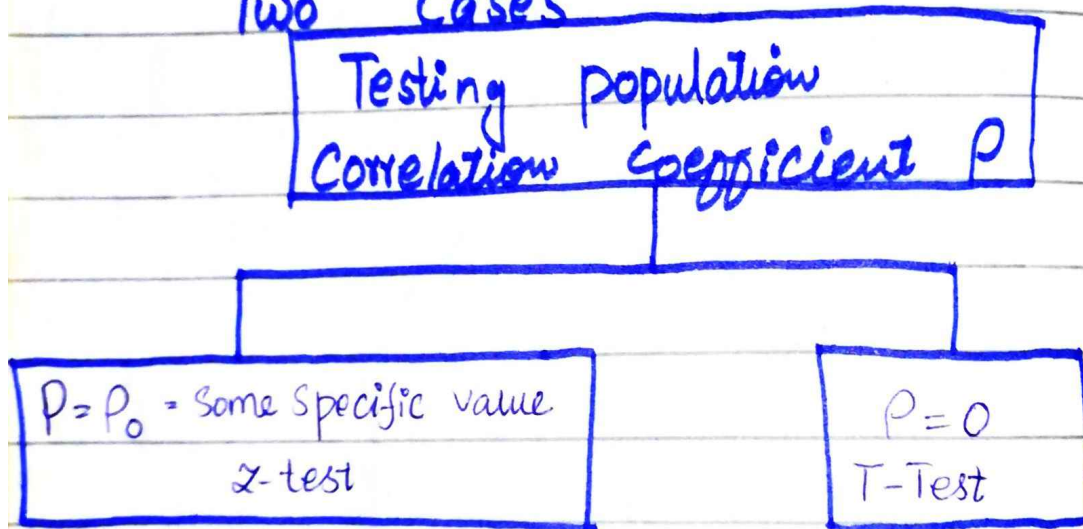 Two Cases
Testing population
Correlation Coefficient ρ
ρ = ρ₀ = Some Specific value
z-test
ρ = 0
T-Test